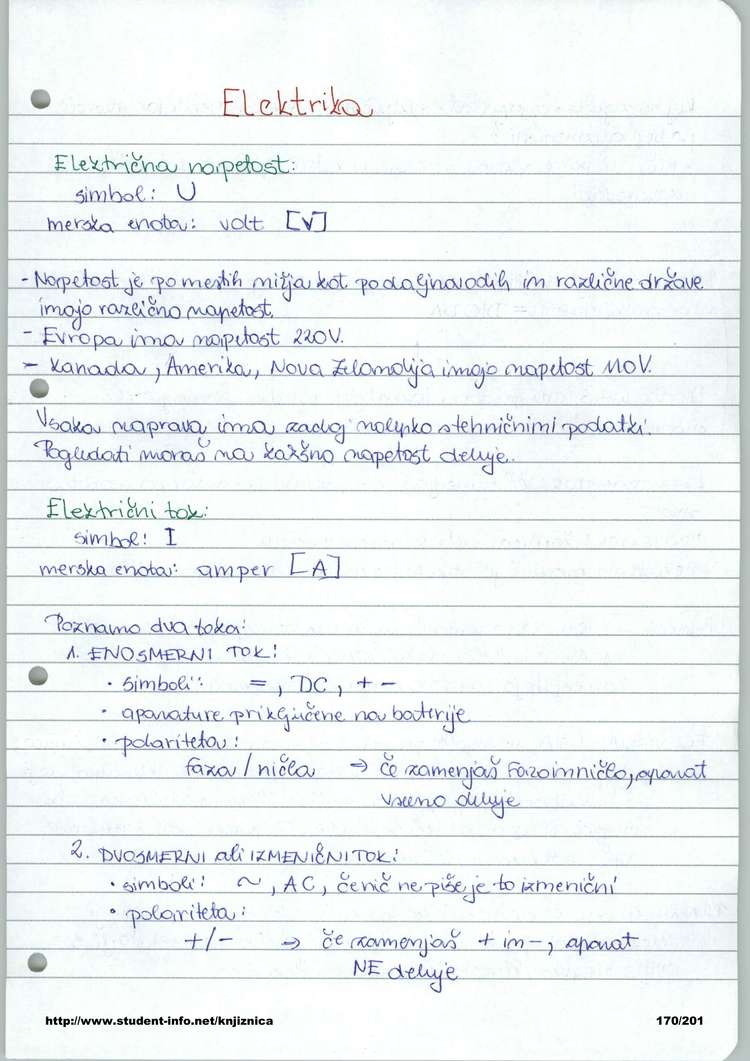 Elektrika
Električna napetost:
simbol: U
merska enota: volt [V]
- Napetost je po mestih nižja kot po daljnovodih in različne države
imajo različno napetost.
- Evropa ima napetost 220V.
- Kanada, Amerika, Nova Zelandija imajo napetost 110V.
Vsaka naprava ima zadaj nalepko s tehničnimi podatki.
Pogledati moraš na kakšno napetost deluje.
Električni tok:
simbol: I
merska enota: amper [A]
Poznamo dva toka:
1. ENOSMERNI TOK:
• simboli: =, DC, + -
• aparature priključene na baterije
• polariteta:
faza / ničla → če zamenjaš fazo in ničlo, aparat
vseeno deluje
2. DVOSMERNI ali IZMENIČNI TOK:
• simboli: ~, AC, če nič ne piše je to izmenični
• polariteta:
+/- → če zamenjaš + in -, aparat
NE deluje
http://www.student-info.net/knjiznica 170/201